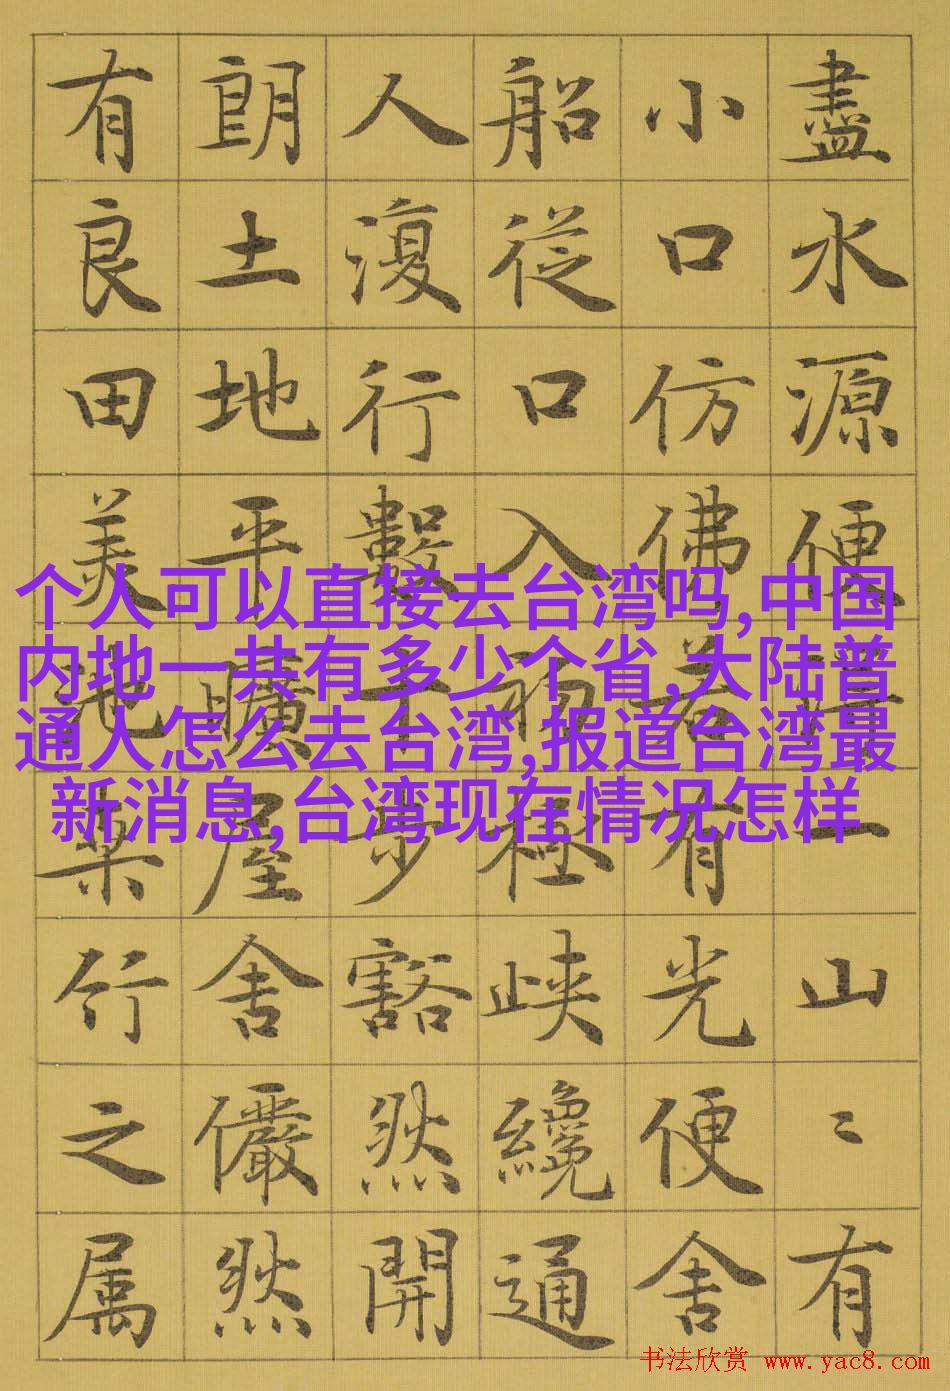 盡水源便得一山〻有
小口仿佛若有光便舍
船從口入初極峽纔通
人復行數十步豁然開
朗土地平曠屋舍儼然
有良田美池桑竹之属
个人可以直接去台湾吗,中国
内地一共有多少个省,大陆普
通人怎么去台湾,报道台湾最
新消息,台湾现在情况怎样
书法欣赏 www.yac8.com